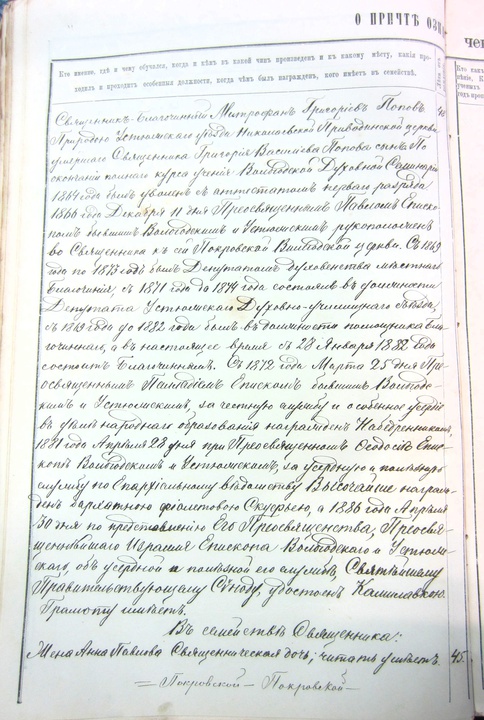 О ПРИЧТѢ ОЗН
чен
Кто именно, гдѣ и чему обучался, когда и кѣмъ въ какой чинъ произведенъ и къ какому мѣсту, какія про-
ходилъ и проходитъ особенныя должности, когда чѣмъ былъ награжденъ, кого имѣетъ въ семействѣ.
Священникъ-Благочинный Митрофанъ Григоріевъ Поповъ
Природою Устюжскаго уѣзда Николаевской Приводинской церкви
умершаго Священника Григорія Васильева Попова сынъ. По
окончаніи полнаго курса ученія Вологодской Духовной Семинаріи
1864 года былъ уволенъ съ аттестатомъ перваго разряда
1866 года Декабря 11 дня Преосвященнымъ Павломъ Еписко-
помъ бывшимъ Вологодскимъ и Устюжскимъ рукоположенъ
во Священника къ сей Покровской церкви. Съ 1869
года по 1873 годъ былъ Депутатомъ духовенства мѣстнаго
благочинія, съ 1871 года до 1874 года состоялъ въ должности
Депутата Устюжскаго Духовно-училищнаго съѣзда,
съ 1869 года до 1882 года былъ въ должности помощника бла-
гочиннаго, а въ настоящее время съ 28 Января 1882 года
состоитъ Благочиннымъ. Съ 1872 года Марта 25 дня Пре-
освященнымъ Палладіемъ Епископомъ бывшимъ Вологод-
скимъ и Устюжскимъ, за честную службу и особенное усердіе
въ дѣлѣ народнаго образованія награжденъ Набедренникомъ,
1881 года Апрѣля 28 дня при Преосвященномъ Ѳеодосіѣ Епис-
копѣ Вологодскомъ и Устюжскомъ, за усердную и полезную
службу по Епархіальному вѣдомству Высочайше награж-
денъ бархатною фіолетовою Скуфьею, а 1886 года Апрѣля
30 дня по представленію Его Преосвященства, Преосвя-
щеннѣйшаго Израиля Епископа Вологодскаго и Устюж-
скаго, объ усердной и полезной его службѣ, Святѣйшему
Правительствующему Сѵноду, удостоенъ Камилавкою.
Грамоту имѣетъ.
Въ семействѣ Священника:
Жена Анна Павлова Священническая дочь; читать умѣетъ. 45.
Покровской — Покровской